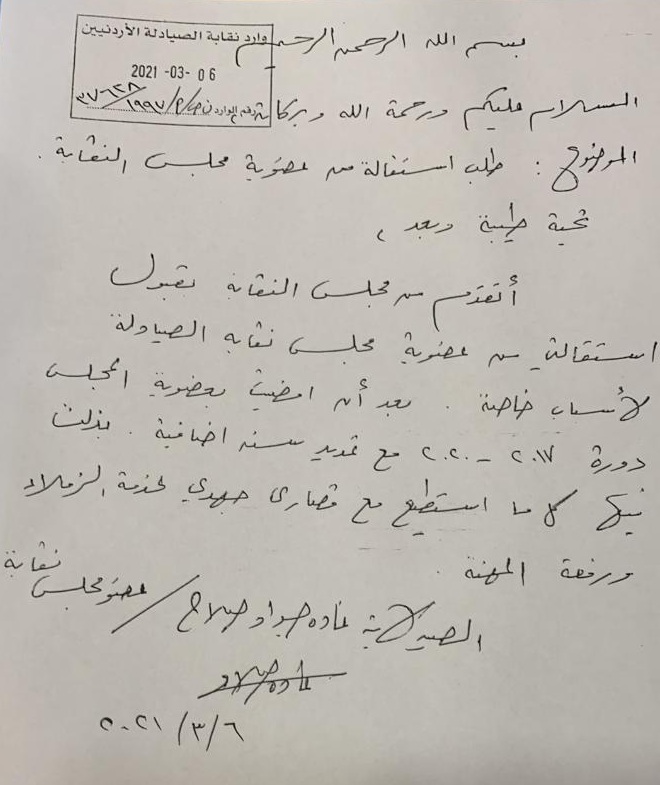 وارد نقابة الصيادلة الأردنيين
2021 -03- 0 6
رقم الوارد ن ص/م/١٩٩٧/٣٧٦٢٨
بسم الله الرحمن الرحيم
السلام عليكم ورحمة الله وبركاته
الموضوع : طلب استقالة من عضوية مجلس النقابة .
تحية طيبة وبعد ،
أتقدم من مجلس النقابة بقبول
استقالتي من عضوية مجلس نقابة الصيادلة
لأسباب خاصة . بعد أن امضيت بعضوية المجلس
دورة ٢٠١٧ - ٢٠٢٠ مع تمديد سنة اضافية . بذلت
فيها كل ما استطيع مع قصارى جهدي لخدمة الزملاء
ورفعة المهنة .
الصيدلانية غادة جواد صلاح / عضو مجلس نقابة
غادة صلاح
٢٠٢١/٣/٦